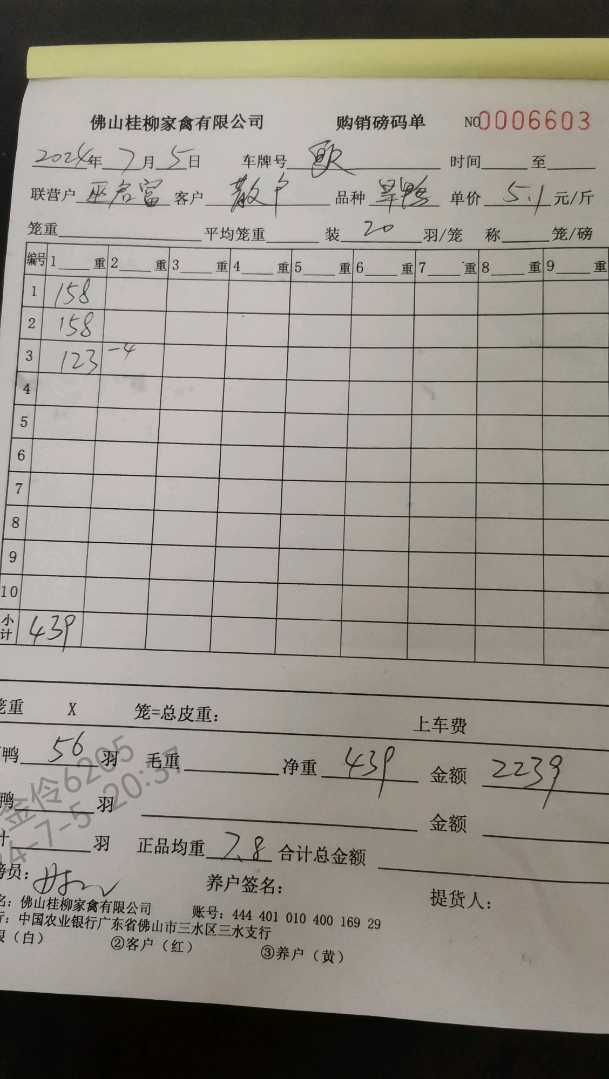 佛山桂柳家禽有限公司 购销磅码单 NO0006603
2024年7月5日 车牌号 时间 至
联营户 巫启富 客户 散户 品种 旱鸭 单价 5.1 元/斤
笼重 平均笼重 装 20 羽/笼 称 笼/磅
编号 1 重 2 重 3 重 4 重 5 重 6 重 7 重 8 重 9 重
1 158
2 158
3 123 -4
4
5
6
7
8
9
10
小计 439
笼重 X 笼=总皮重: 上车费
鸭 56 羽 毛重 净重 439 金额 2239
鸭 羽 金额
计 羽 正品均重 7.8 合计总金额
磅员: 养户签名: 提货人:
名: 佛山桂柳家禽有限公司 账号: 444 401 010 400 169 29
行: 中国农业银行广东省佛山市三水区三水支行
(白) ②客户(红) ③养户(黄)
金伶6205
4-7-5 20:37